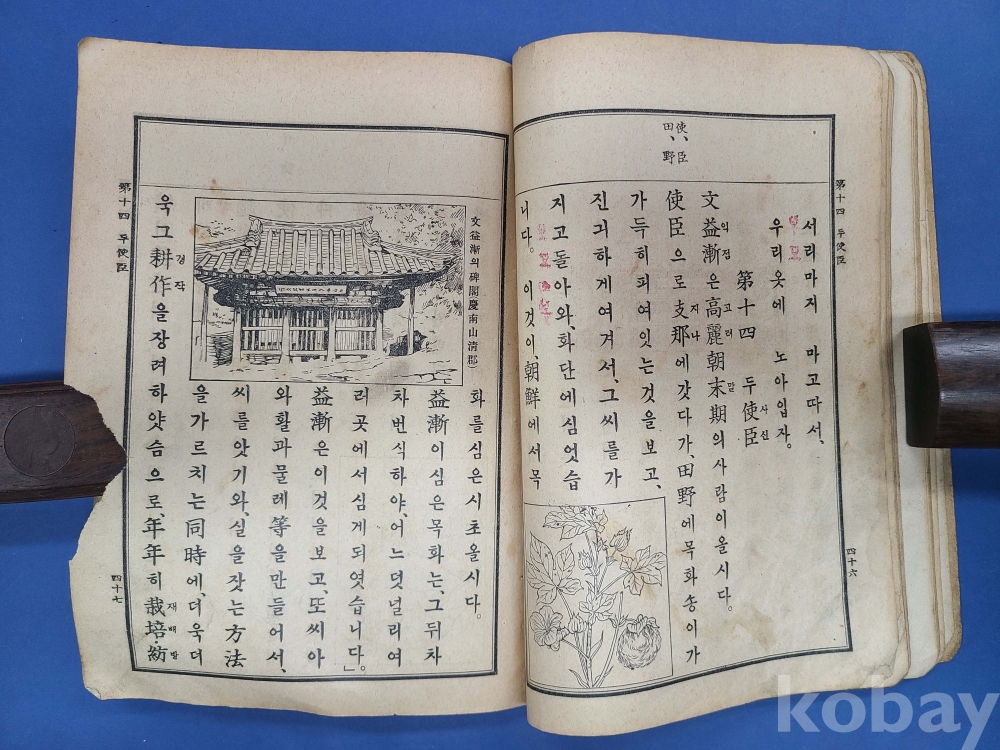 第十四 두使臣
使、臣
田、野
서리마저 마고따서、
우리옷에 노아입자。
第十四 두使臣
사신
文益漸은高麗朝末期의사람이올시다。
익점 고려 말
使臣으로支那에갓다가、田野에목화송이가
지나
가득히피여잇는것을보고、
진긔하게여겨서、그씨를가
지고돌아와、화단에심엇습
니다。이것이、朝鮮에서목
四十六
文益漸의碑閣(慶南山清郡)
화를심은시초올시다。
益漸이심은목화는、그뒤차
차번식하야、어느덧널리여
러곳에서심게되엿습니다」。
益漸은이것을보고、또씨아
와활과물레等을만들어서、
씨를앗기와、실을잣는方法
을가르치는同時에、더욱더
욱그耕作을장려하얏슴으로、年年히栽培·紡
경작 재배 방
第十四 두使臣
四十七
kobay